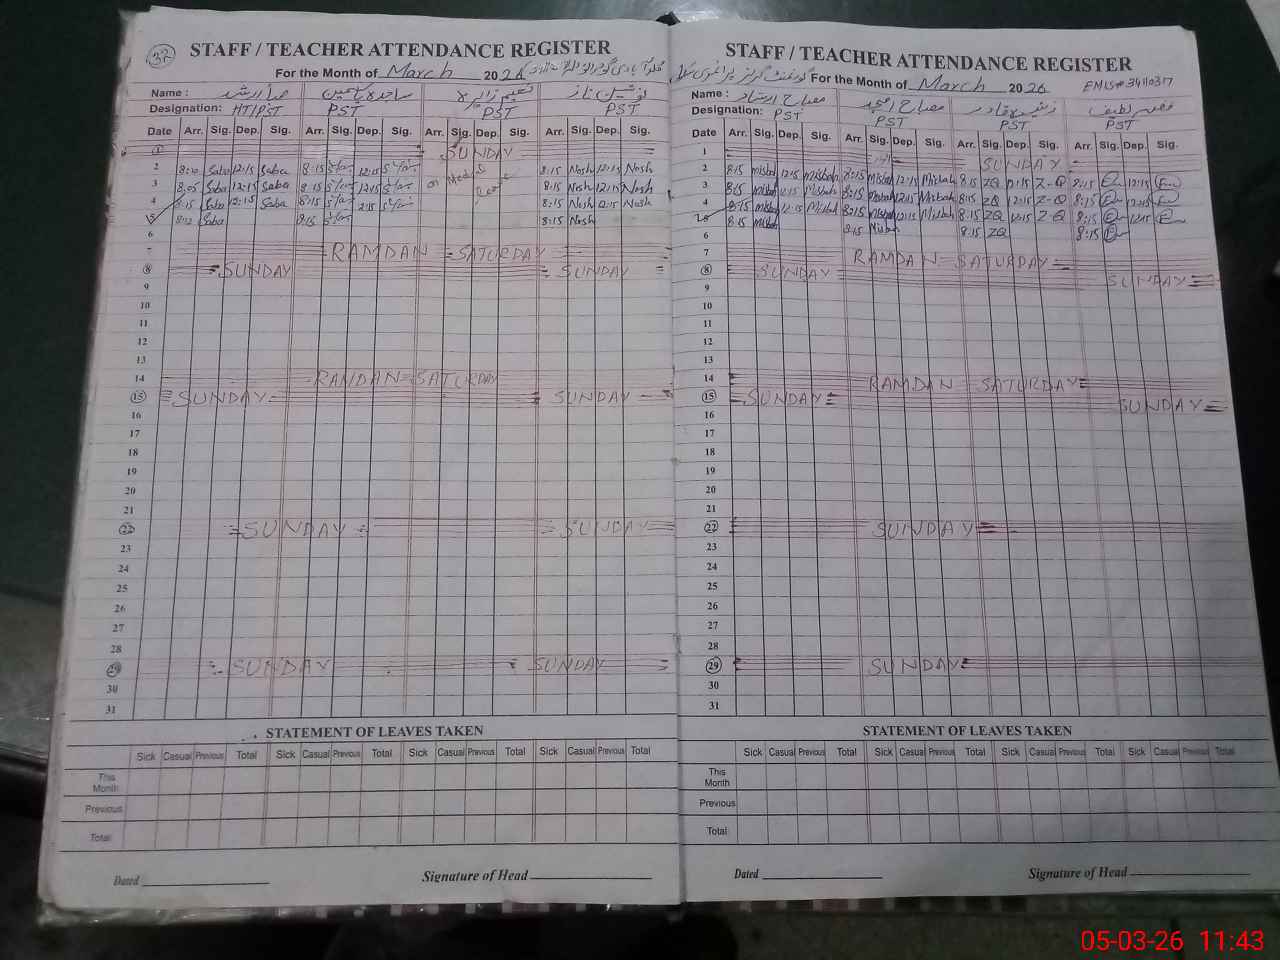 32
STAFF / TEACHER ATTENDANCE REGISTER
For the Month of March 2026
Name : صبا ارشد ساجدہ یاسمین نوشین ناز
Designation: HT/PST PST PST PST
Date Arr. Sig. Dep. Sig. Arr. Sig. Dep. Sig. Arr. Sig. Dep. Sig. Arr. Sig. Dep. Sig.
1 SUNDAY
2 8:10 Saba 12:15 Saba 8:15 12:15 8:15 Nosh 12:15 Nosh
3 8:05 Saba 12:15 Saba 8:15 12:15 on Medical 8:15 Nosh 12:15 Nosh
4 8:15 Saba 12:15 Saba 8:15 12:15 8:15 Nosh 12:15 Nosh
5 8:12 Saba 8:15 8:15 Nosh
6
7 RAMDAN = SATURDAY
8 SUNDAY SUNDAY
9
10
11
12
13
14 RAMDAN = SATURDAY
15 SUNDAY SUNDAY
16
17
18
19
20
21
22 SUNDAY SUNDAY
23
24
25
26
27
28
29 SUNDAY SUNDAY
30
31
STATEMENT OF LEAVES TAKEN
Sick Casual Previous Total Sick Casual Previous Total Sick Casual Previous Total Sick Casual Previous Total
This Month
Previous
Total
Dated Signature of Head
STAFF / TEACHER ATTENDANCE REGISTER
For the Month of March 2026 EMIS# 34110317
Name : مصباح ارشاد مصباح امجد
Designation: PST PST PST PST
Date Arr. Sig. Dep. Sig. Arr. Sig. Dep. Sig. Arr. Sig. Dep. Sig. Arr. Sig. Dep. Sig.
1 SUNDAY
2 8:15 Misbah 12:15 Misbah 8:15 Misbah 12:15 Misbah 8:15 ZQ 12:15 Z-Q 8:15 12:15
3 8:15 Misbah 12:15 Misbah 8:15 Misbah 12:15 Misbah 8:15 ZQ 12:15 Z-Q 8:15 12:15
4 8:15 Misbah 12:15 Misbah 8:15 Misbah 12:15 Misbah 8:15 ZQ 12:15 Z-Q 8:15 12:15
5 8:15 Misbah 8:15 Misbah 8:15 ZQ 8:15
6
7 RAMDAN = SATURDAY
8 SUNDAY SUNDAY
9
10
11
12
13
14 RAMDAN SATURDAY
15 SUNDAY SUNDAY
16
17
18
19
20
21
22 SUNDAY
23
24
25
26
27
28
29 SUNDAY
30
31
STATEMENT OF LEAVES TAKEN
Sick Casual Previous Total Sick Casual Previous Total Sick Casual Previous Total Sick Casual Previous Total
This Month
Previous
Total
Dated Signature of Head
05-03-26 11:43